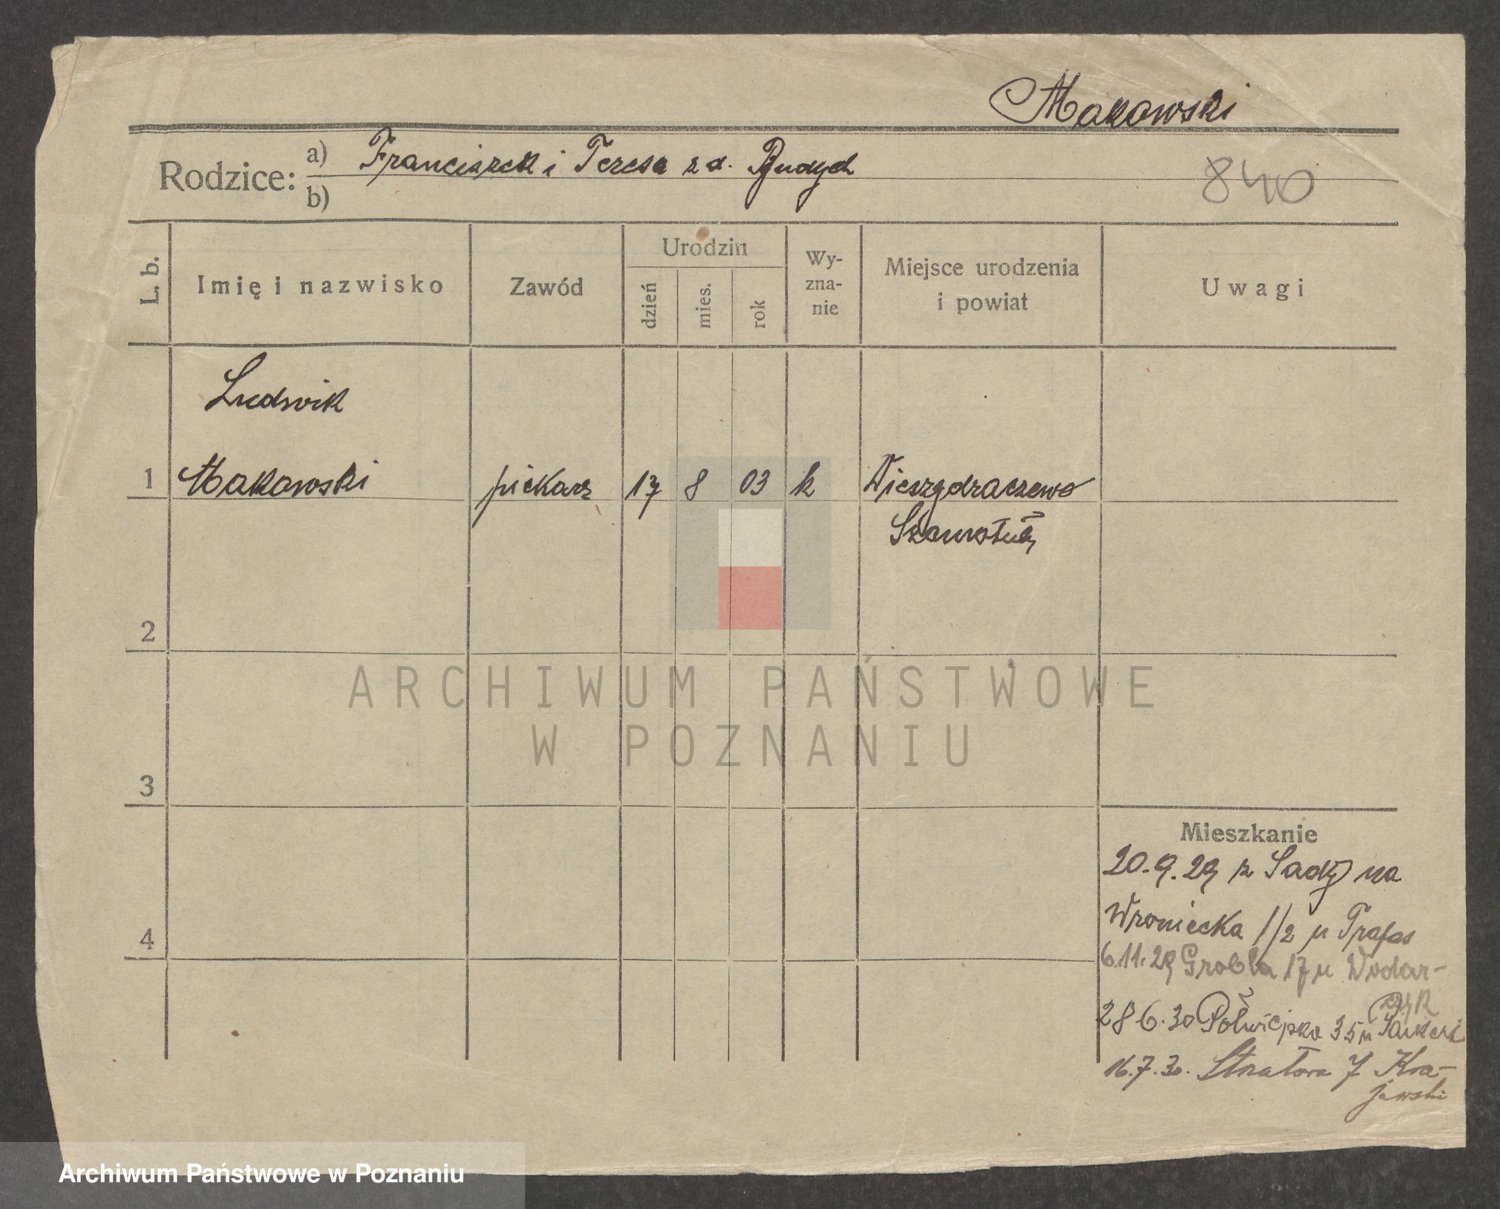 Makowski
Rodzice: a) Franciszek i Teresa z d. Rudych
b)
840
L. b.
Imię i nazwisko
Zawód
Urodzin
dzień
mies.
rok
Wy-
zna-
nie
Miejsce urodzenia
i powiat
Uwagi
Ludwik
1 Makowski piekarz 17 8 03 k
Szamotuły
2
3
4
ARCHIWUM PAŃSTWOWE
W POZNANIU
Mieszkanie
20.9.29 z Sady na
Wroniecka 1/2 u Trafas
6.11.29 Grobla 17 u Wodar-
czyk
28 6.30 Półwiejska 35 u
16.7.30. 7 Kra-
jewski
Archiwum Państwowe w Poznaniu